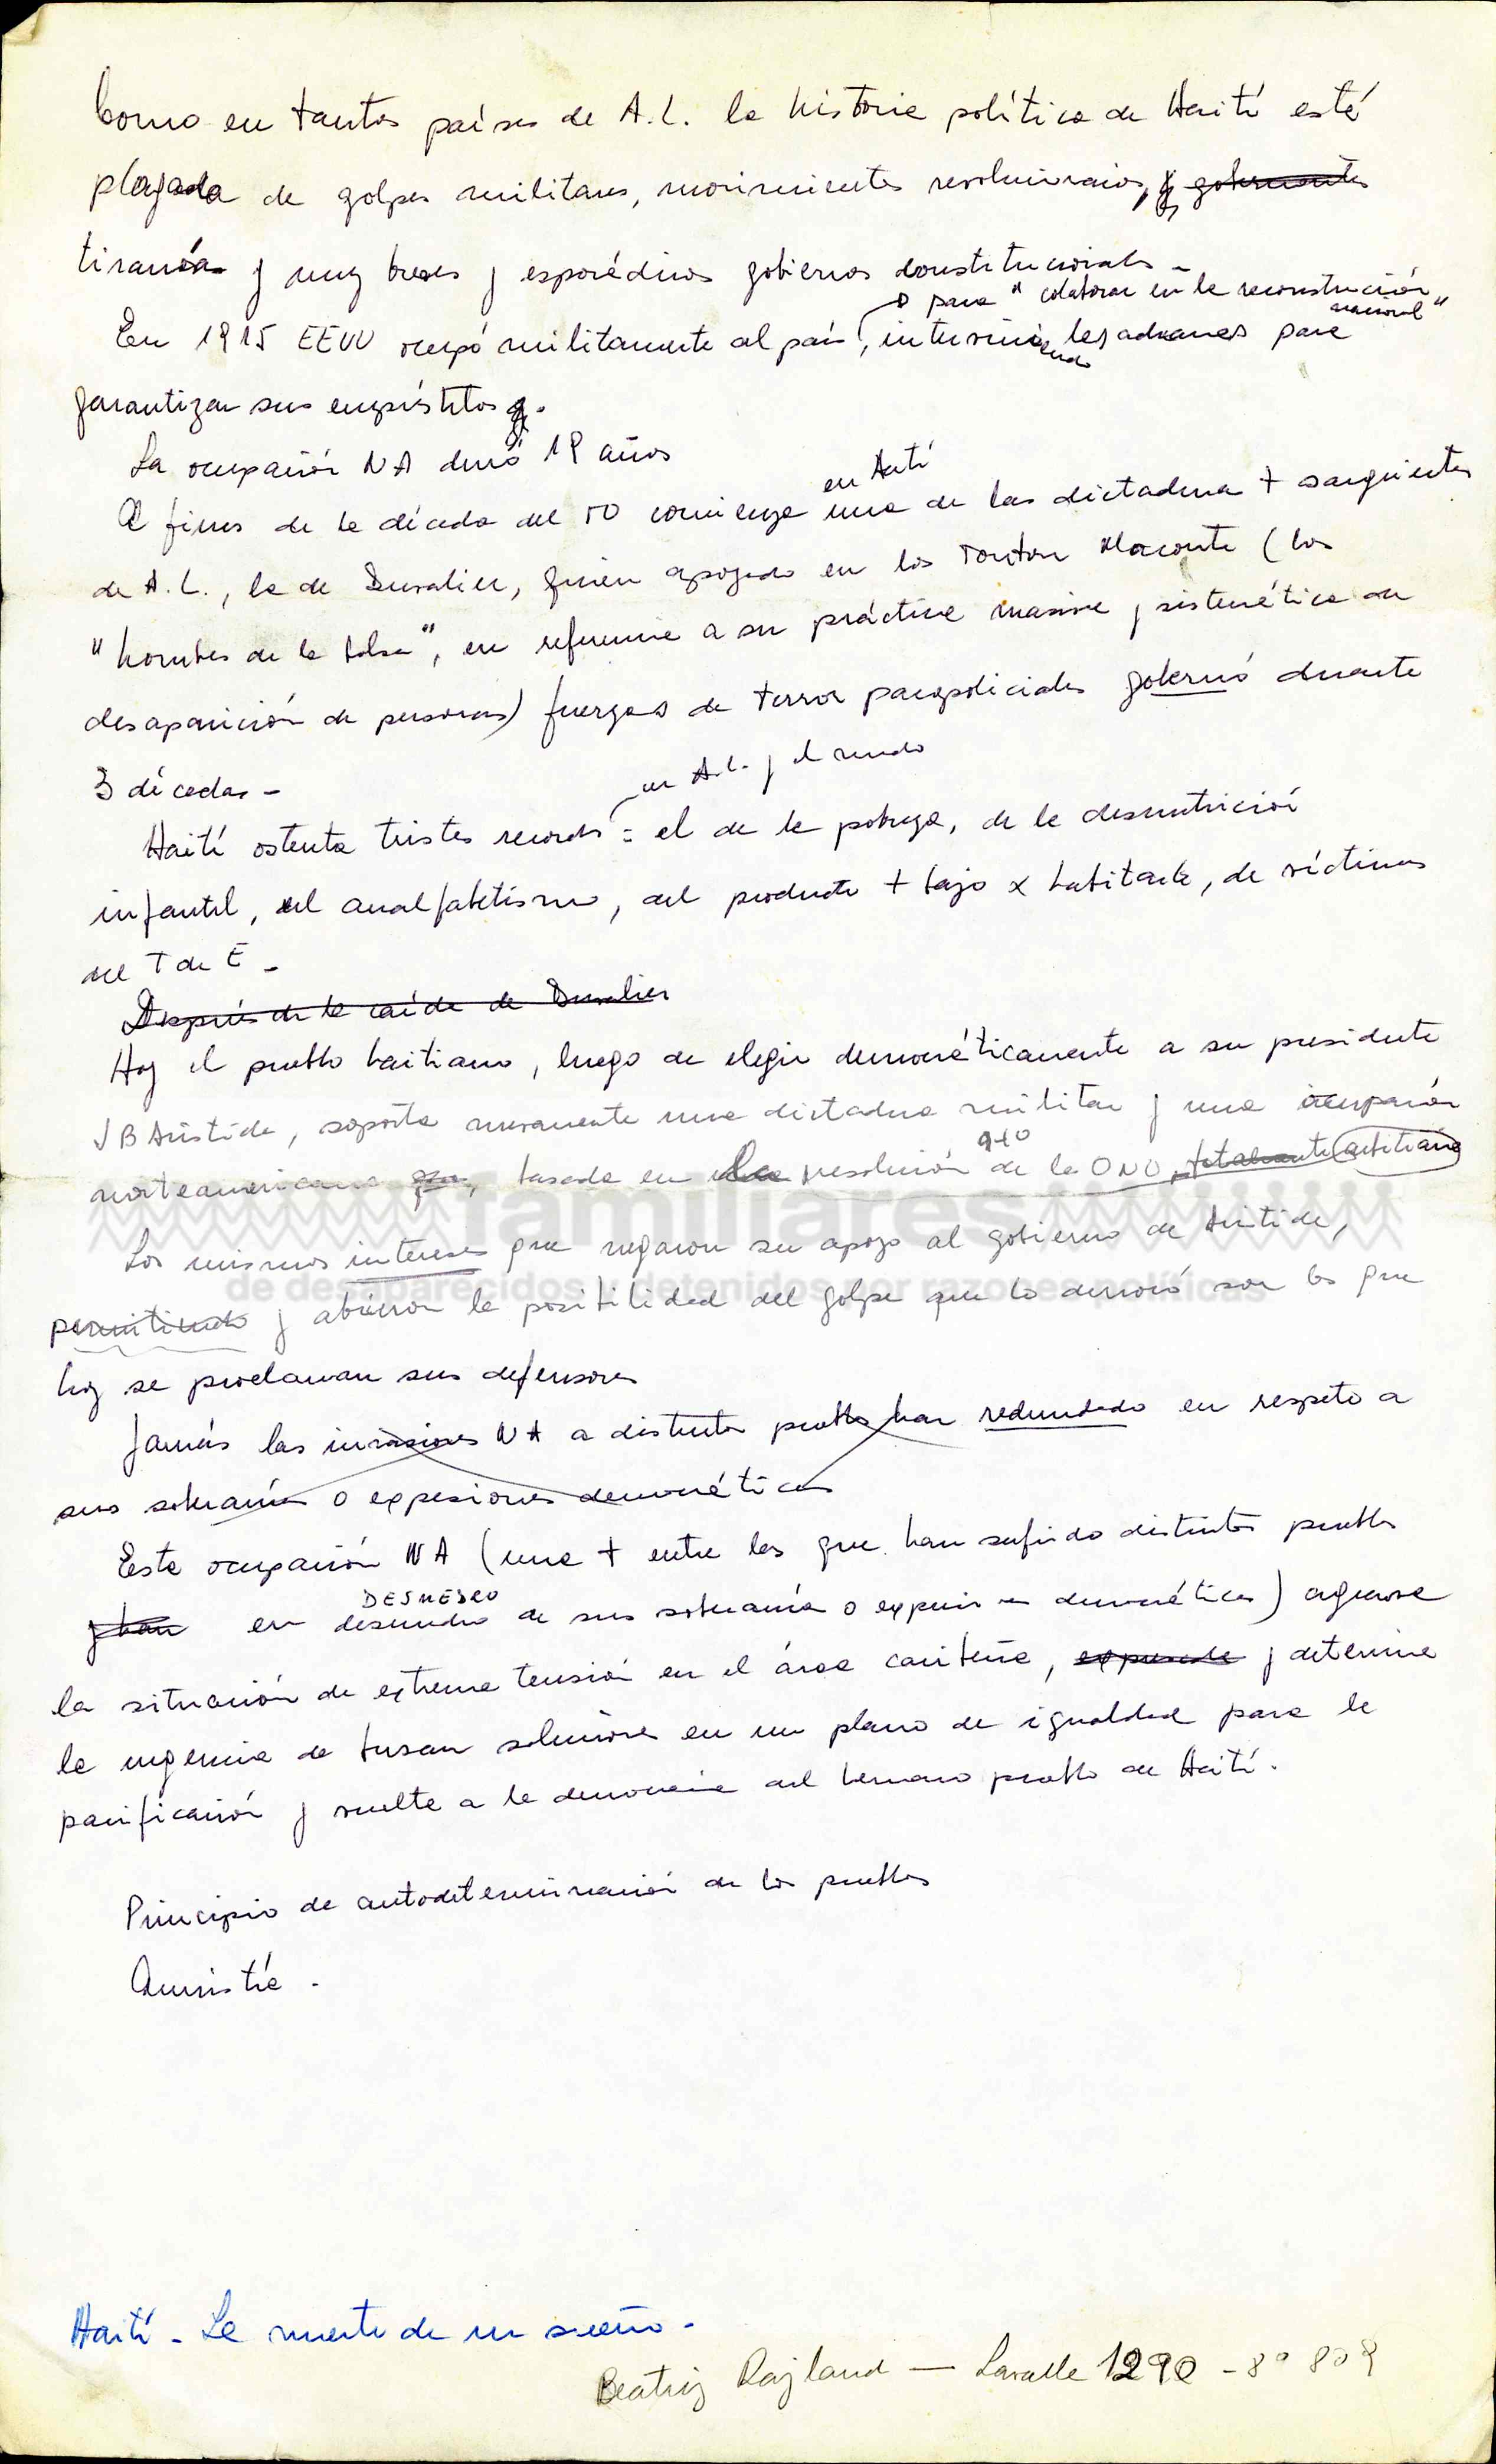 Como en tantos países de A.L. la historia política de Haití está
plagada de golpes militares, movimientos revolucionarios, y gobernantes
tiranía y muy breves y esporádicos gobiernos constitucionales -
para "colaborar en la reconstrucción nacional"
En 1915 EEUU ocupó militarmente al país, interviniendo las aduanas para
garantizar sus empréstitos y.
La ocupación NA duró 19 años
en Haití
A fines de la década del 50 comienza una de las dictadura + sangrientas
de A.L., la de Duvalier, quien apoyado en los Tonton Macoute (los
"hombres de la bolsa", en referencia a su práctica masiva y sistemática de
desaparición de personas) fuerzas de terror parapoliciales gobernó durante
3 décadas -
en A.L. y el mundo
Haití ostenta tristes records: el de la pobreza, de la desnutrición
infantil, del analfabetismo, del producto + bajo x habitante, de víctimas
del T de E -
Después de la caída de Duvalier
Hoy el pueblo haitiano, luego de elegir democráticamente a su presidente
JB Aristide, soporta nuevamente una dictadura militar y una ocupación
940
norteamericana que, basada en la resolución de la ONU, totalmente arbitraria
familiares
Los mismos intereses que negaron su apoyo al gobierno de Aristide,
de desaparecidos y detenidos por razones políticas
permitiendo y abrieron la posibilidad del golpe que lo derrocó son los que
hoy se proclaman sus defensores
Jamás las invasiones NA a distintos pueblos han redundado en respeto a
sus soberanía o expresiones democráticas
Esta ocupación NA (una + entre las que han sufrido distintos pueblos
DESMEDRO
y han en desmedro de sus soberanía o expresiones democráticas) agrava
la situación de extrema tensión en el área caribeña, expresada y determina
la urgencia de buscar soluciones en un plano de igualdad para la
pacificación y vuelta a la democracia del hermano pueblo de Haití.
Principio de autodeterminación de los pueblos
Amnistía -
Haití - La muerte de un sueño -
Beatriz Rajland — Lavalle 1290 - 8° 809